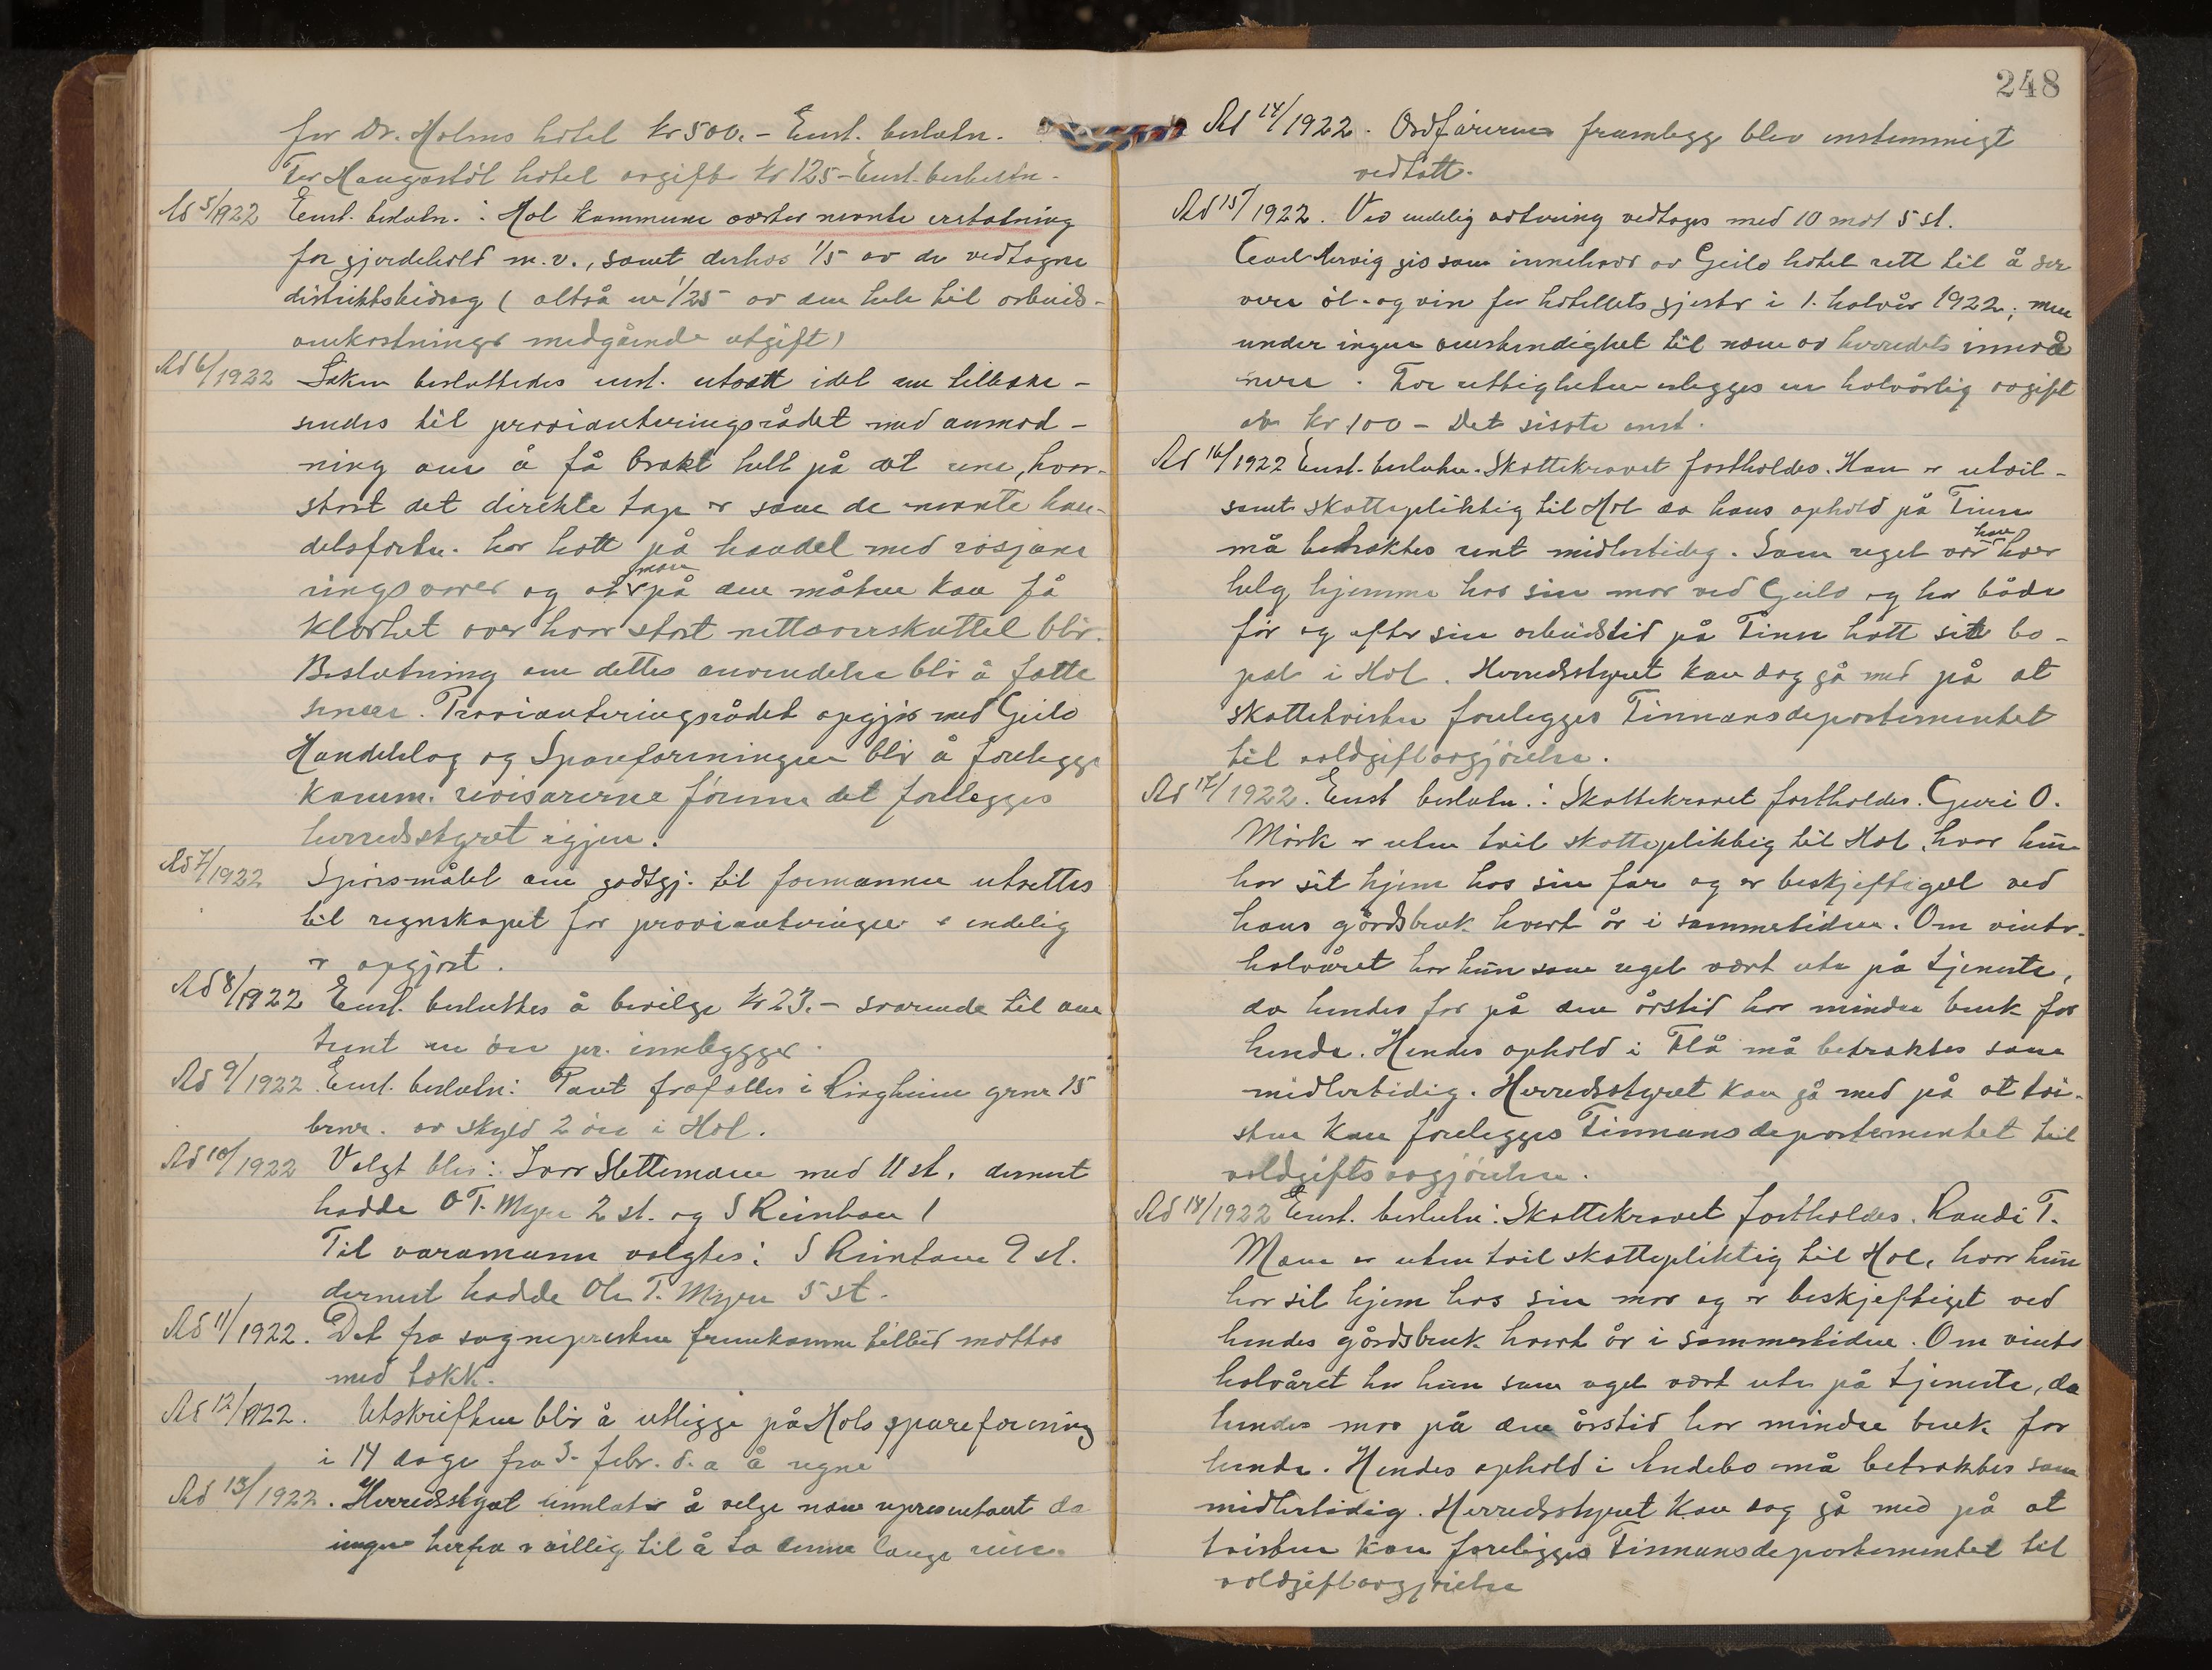 for Dr. Holms hotel kr 500.- Enst. beslutn.
For Haugastöl hotel avgift kr 125 - Enst. beslutn.
Ad 5/1922 Enst. beslutn.: Hol kommune nevnte erstatning
for gjerdehold m.v., samt derhos 1/5 av de vedtagne
distriktsbidrag (altså en 1/25 av den hele til arbeids-
omkostninger medgående utgift)
Ad 6/1922 Saken besluttedes enst. utsatt idet en
sendes til provianteringsrådet med anmod-
ning om å få brakt helt på det rene, hvor-
stort det direkte tap er som de nevnte han-
delsforetn. har hatt på handel med rasjone
ringsvarer og at man på den måten kan få
klarhet over hvor stort nettooverskuttet blir.
Beslutning om dettes anvendelse blir å fatte
senere. Provianteringsrådets opgjör med Geilo
Handelslag og Spareforeningen blir å forelegge
komm. revisorerne förenn det forelegges
herredsstyret igjen.
Ad 7/1922 Spörsmålet om godtgj. til formannen utsettes
til regnskapet for provianteringen endelig
er opgjort.
Ad 8/1922 Enst. besluttes å bevilge kr 23.- svarende til om
trent en öre pr. innbygger.
Ad 9/1922. Enst. beslutn: Pant frafalles i Ringheim grnr 15
brnr. av skyld 2 öre i Hol.
Ad 10/1922 Valgt blev: Ivar Slettemoen med 11 st. dernest
hadde O T. Myren 2 st. og S Reinton 1
Til varamann valgtes: S Reinton 9 st.
dernest hadde Ole T. Myren 5 st.
Ad 11/1922. Det fra sognepresten fremkomne tilbud mottas
med takk.
Ad 12/1922. Utskriften blir å utlegge på Hols spareforening
i 14 dage fra 3. febr. d. a å regne
Ad 13/1922. Herredsstyret unnlater å velge noen representant da
ingen herfra er villig til å ta denne lange reise.
248
Ad 14/1922. Ordförerens framlegg blev enstemmigt
vedtatt.
Ad 15/1922. Ved endelig avstemning vedtages med 10 mot 5 st.
gis som innehaver av Geilo hotel rett til å ser
vere öl- og vin for hotellets gjester i 1. halvår 1922; men
under ingen omstendighet til noen av herredets innvå
nere. For rettigheten erlegges en halvårlig avgift
av kr 100 - Det sisste enst.
Ad 16/1922 Enst. beslutn. Skattekravet fastholdes. Han er utvil-
somt skattepliktig til Hol da hans ophold på Tinn
må betraktes rent midlertidig. Som regel var han hver
helg hjemme hos sin mor ved Geilo og har både
för og efter sin arbeidstid på Tinn hatt sit bo-
pæl i Hol. Herredsstyret kan dog gå med på at
skattetvisten forelegges Finnansdepartementet
til voldgiftavgjörelse.
Ad 17/1922. Enst beslutn.: Skattekravet fastholdes. Guri O.
Mörk er uten tvil skattepliktig til Hol, hvor hun
har sit hjem hos sin far og er beskjeftiget ved
hans gårdsbruk hvert år i sommertiden. Om vinter-
halvåret har hun som regel vært ute på tjeneste,
da hendes far på den årstid har mindre bruk for
hende. Hendes ophold i Flå må betraktes som
midlertidig. Herredsstyret kan gå med på at tvi-
sten kan forelegges Finnansdepartementet til
voldgiftsavgjörelse.
Ad 18/1922 Enst. beslutn: Skattekravet fastholdes. Randi T.
Moen er uten tvil skattepliktig til Hol, hvor hun
har sit hjem hos sin mor og er beskjeftiget ved
hendes gårdsbruk hvert år i sommertiden. Om vinter
halvåret har hun som regel vært ute på tjeneste, da
hendes mor på den årstid har mindre bruk for
hende. Hendes ophold i Andebo må betraktes som
midlertidig. Herredsstyret kan dog gå med på at
tvisten kan forelegges Finnansdepartementet til
voldgiftavgjörelse